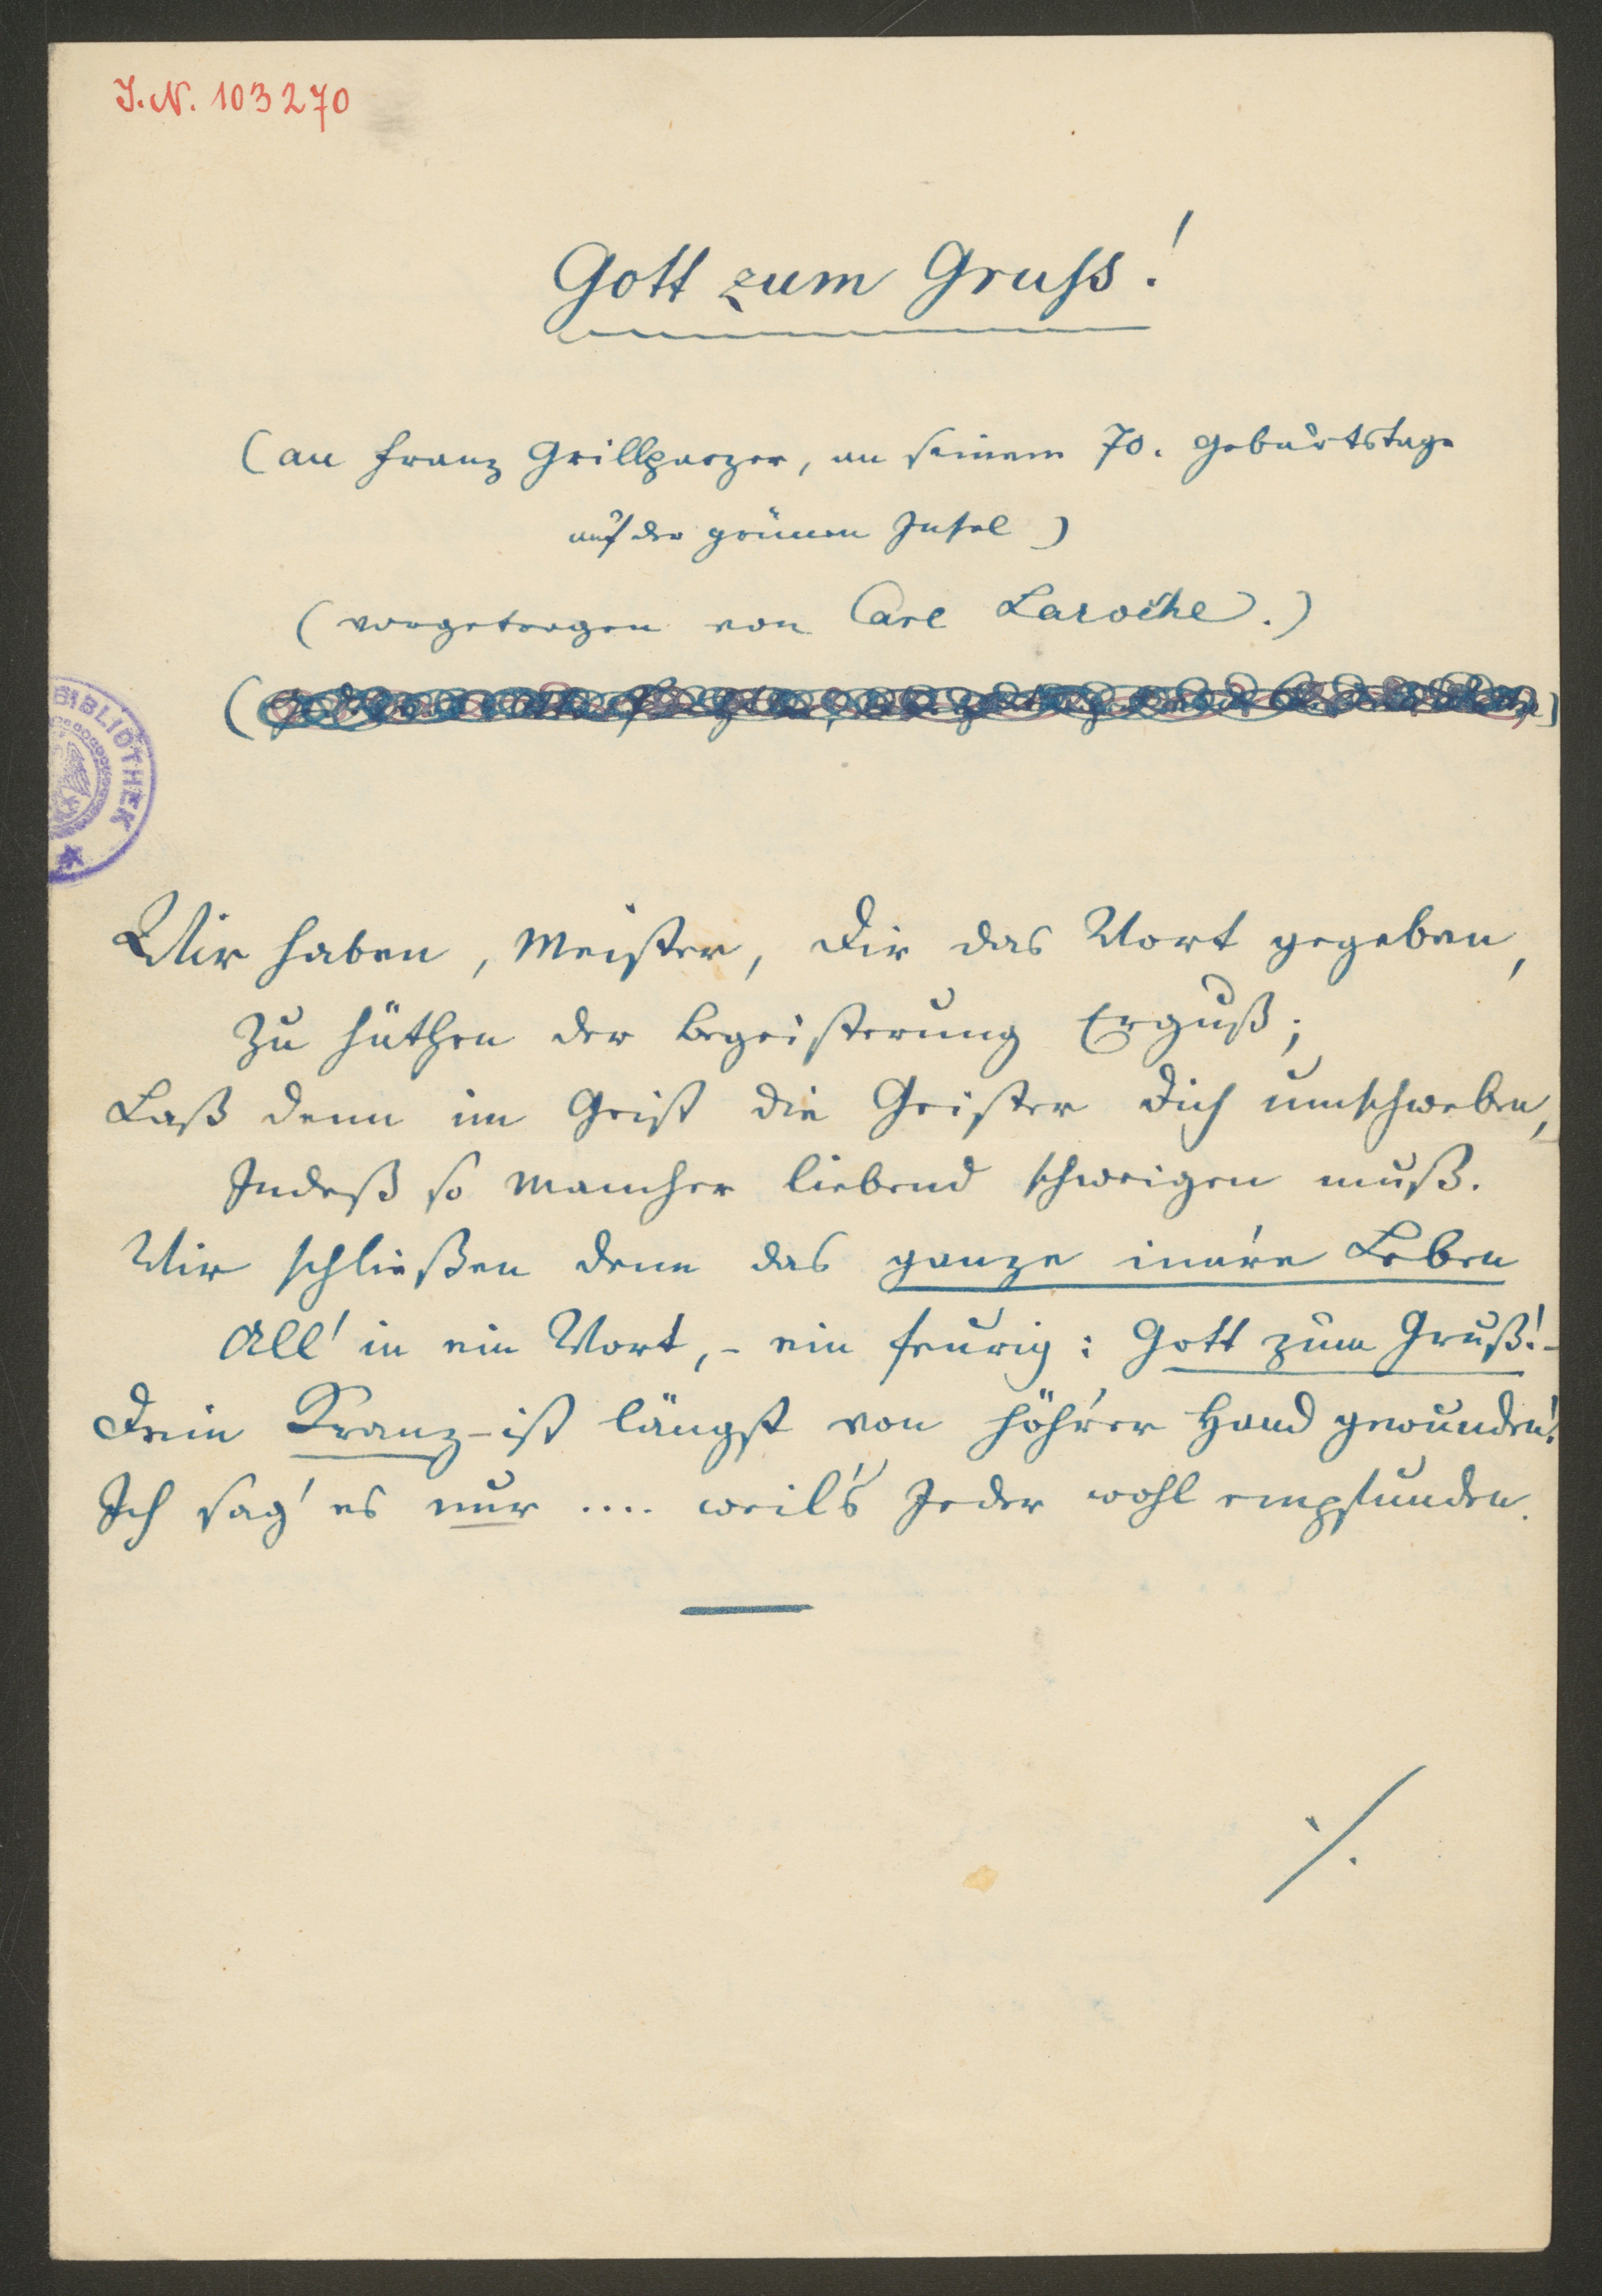 J. N. 103270
Gott zum Gruss!
(an Franz Grillparzer, an seinem 70. Geburtstage
auf der grünen Insel)
(vorgetragen von Carl Laroche.)
BIBLIOTHEK
Wir haben, Meister, Dir das Wort gegeben,
Zu hüthen der Begeisterung Erguß;
Laß denn im Geist die Geister Dich umschweben,
Indeß so mancher liebend schweigen muß.
Wir schließen denn das ganze inn're Leben
All' in ein Wort, - ein feurig: Gott zum Gruß! -
Dein Kranz - ist längst von höh'rer Hand gewunden!
Ich sag' es nur .... weil's Jeder wohl empfunden.
./.